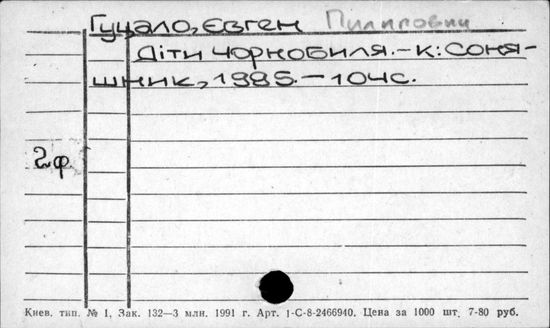 Гуцало, Євген Пилипович
Діти Чорнобиля. - К: Соня-
шник, 1995. - 104с.
2ф
Киев. тип. № 1, Зак. 132—3 млн. 1991 г. Арт. 1-С-8-2466940. Цена за 1000 шт. 7-80 руб.